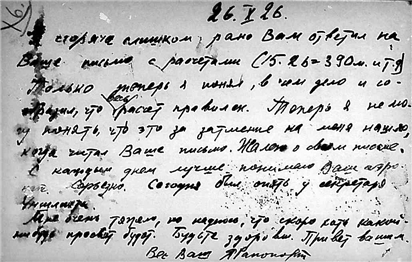 26.V 26.
Я сгоряча слишком рано Вам ответил на
Ваше письмо с расчетами (15.26=390м. и т.д)
Только теперь я понял, в чем дело и со-
что весь расчет правилен. Теперь я не мо-
гу понять, что это за затмение на меня нашло,
когда читал Ваше письмо. Жалею о своем письме.
С каждым днем лучше понимаю Ваш
Сегодня был опять у секретаря
Мне очень тяжело, но надеюсь, что скоро хоть какой
нибудь просвет будет. Будьте здоровы. Привет вашим
Вес Ваш